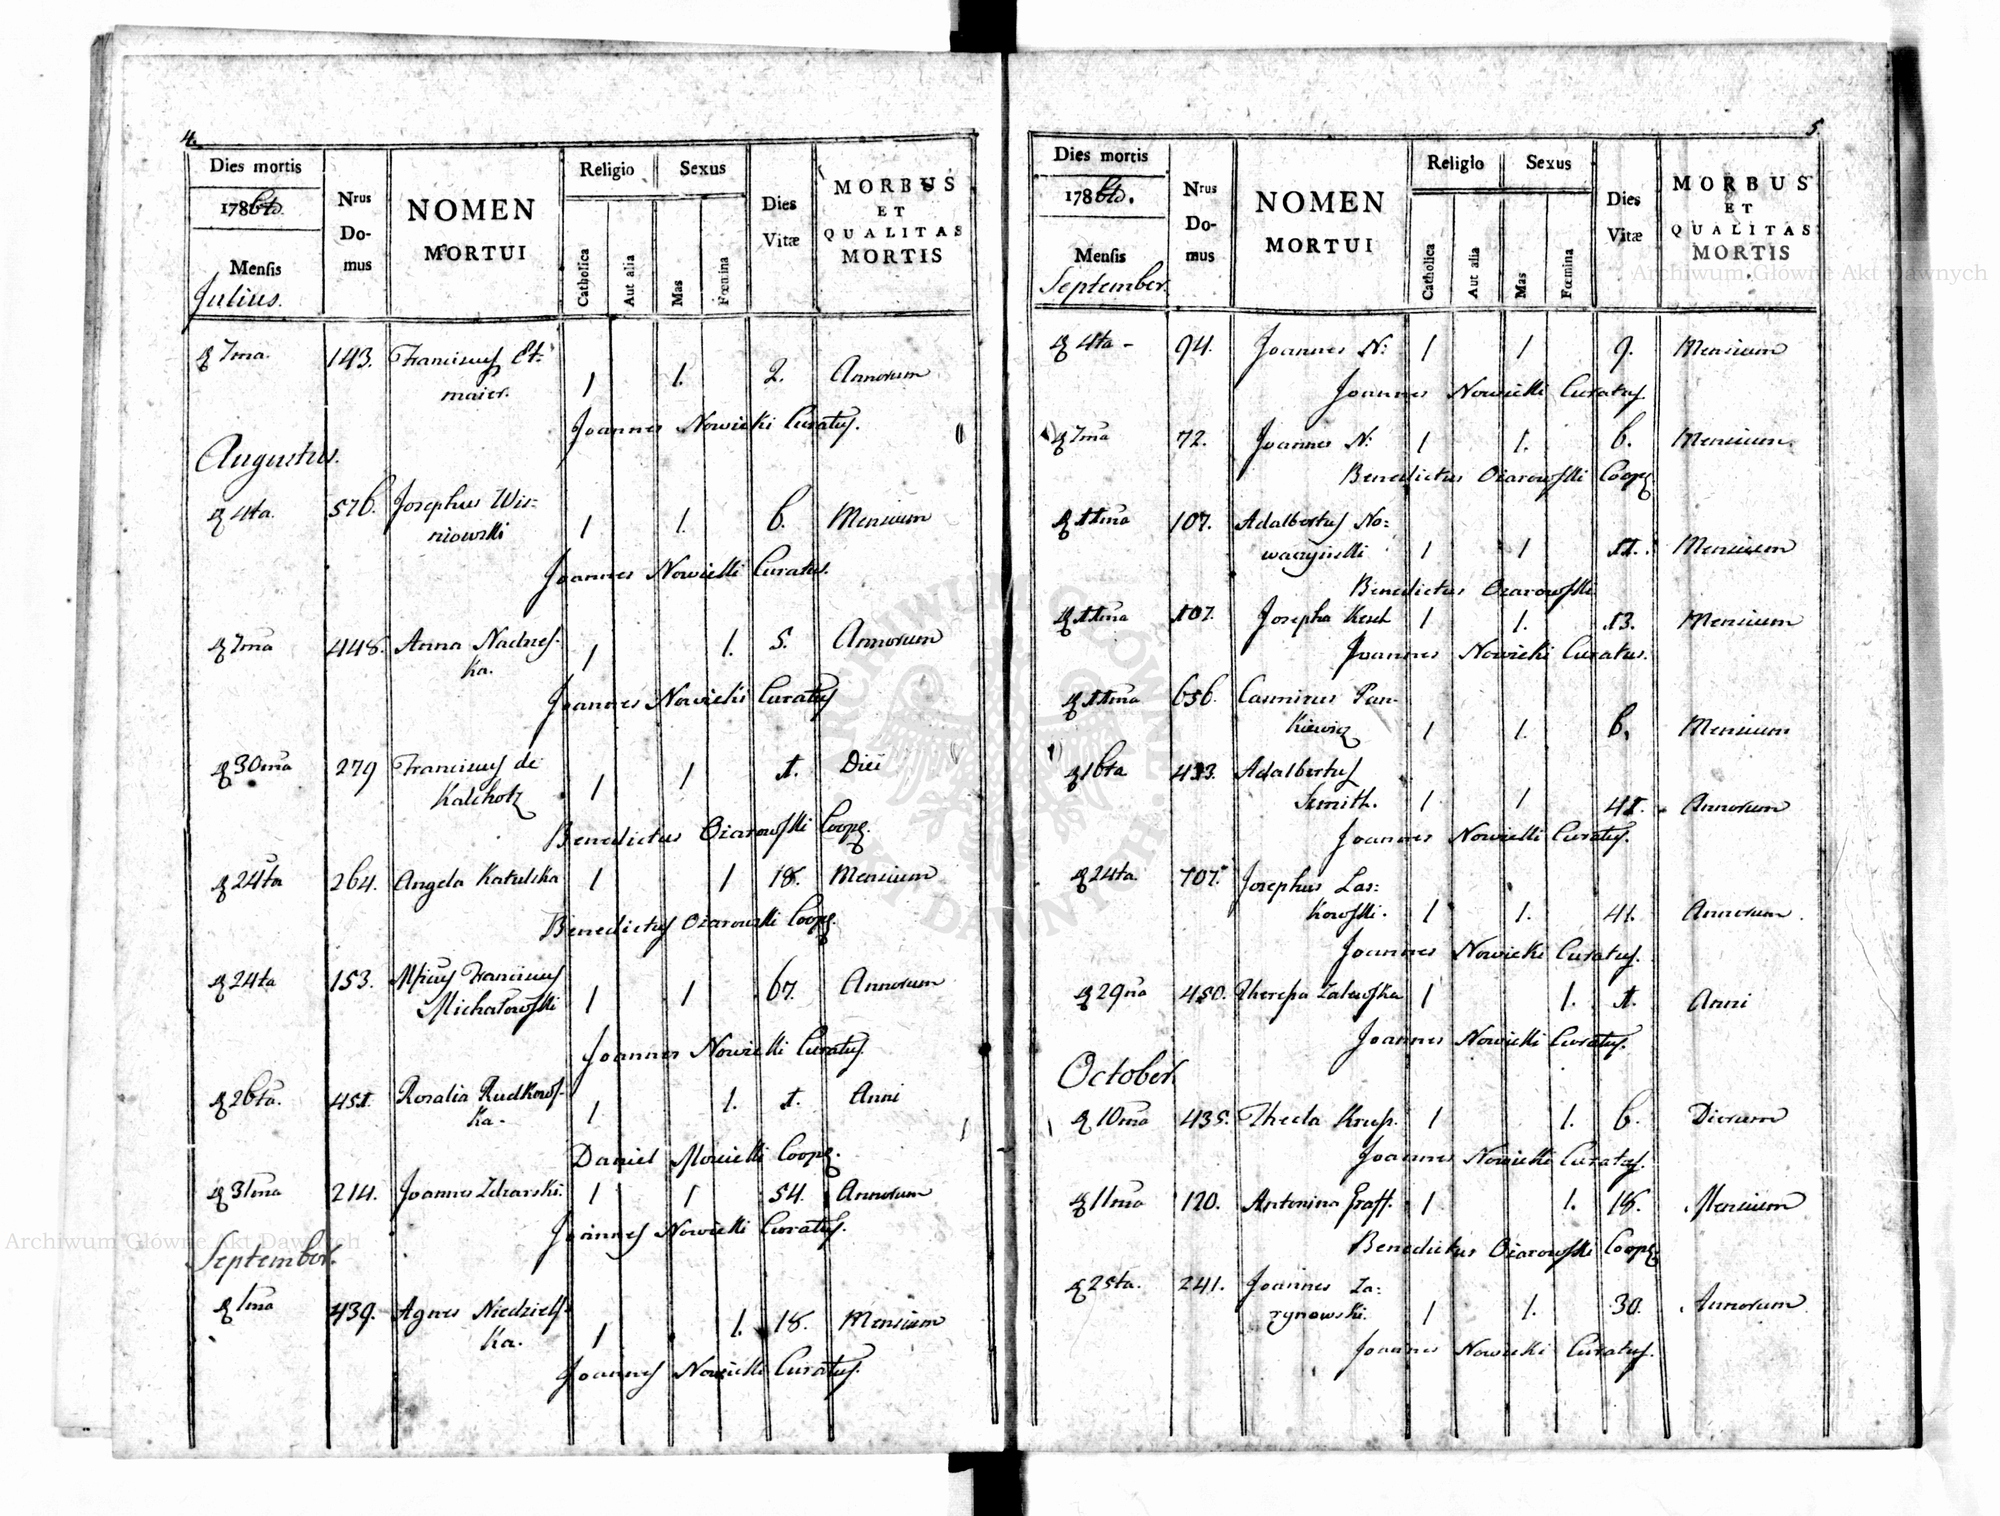 4.
Dies mortis
1786to.
Mensis
Julius.
Nrus
Do-
mus
NOMEN
MORTUI
Religio
Catholica
Aut alia
Sexus
Mas
Fœmina
Dies
Vitæ
MORBUS
ET
QUALITAS
MORTIS
7ma. 143. Franciscus Et-
maier. 1 1. 2. Annorum
Joannes Nowicki Curatus.
Augustus.
4ta. 576. Josephus Wis-
niowski 1 1. 6. Mensium
Joannes Nowicki Curatus.
7ma 448. Anna Nadnes-
ka. 1 1. 5. Annorum
Joannes Nowicki Curatus
30ma 279 Franciscus de
Kalckhotz 1 1 1. Diei
Benedictus Oiarowski Coop.
24ta 264. Angela Katulska 1 1 18. Mensium
Benedictus Oiarowski Coop.
24ta 153. Franciscus
Michałowski 1 1 67. Annorum
Joannes Nowicki Curatus.
26ta. 451. Rosalia Rudkows-
ka. 1 1. 1. Anni
Daniel Mowicki Coop.
31ma 214. Joannes Zdzarski. 1 1 54. Annorum
Joannes Nowicki Curatus.
September.
1ma 439. Agnes Niedziels-
ka. 1 1. 18. Mensium
Joannes Nowicki Curatus.
5.
Dies mortis
1786to.
Mensis
September.
Nrus
Do-
mus
NOMEN
MORTUI
Religio
Catholica
Aut alia
Sexus
Mas
Fœmina
Dies
Vitæ
MORBUS
ET
QUALITAS
MORTIS
4ta - 94. Joannes N: 1 1 9. Mensium
Joannes Nowicki Curatus.
7ma 72. Joannes N: 1 1. 6. Mensium.
Benedictus Oiarowski Coop.
11ma 107. Adalbertus No-
waczynski 1 1 11. Mensium
Benedictus Oiarowski
11ma 107. Josepha Kesch 1 1. 13. Mensium
Joannes Nowicki Curatus.
11ma 656. Casimirus Pan-
kiewicz 1 1. 6. Mensium
16ta 433. Adalbertus
Semith. 1 1 41. Annorum
Joannes Nowicki Curatus.
24ta 707. Josephus Las-
kowski. 1 1. 41. Annorum.
Joannes Nowicki Curatus.
29na 450. Theresa Zalewska 1 1. 1. Anni
Joannes Nowicki Curatus.
October.
10ma 435. Thecla Krup. 1 1. 6. Dierum
Joannes Nowicki Curatus.
11ma 120. Antonina Graff. 1 1. 18. Mensium
Benedictus Oiarowski Coop.
25ta. 241. Joannes Za-
rynowski. 1 1. 30. Annorum
Joannes Nowicki Curatus.
Archiwum Główne Akt Dawnych
Archiwum Główne Akt Dawnych
ARCHIWUM GŁÓWNE AKT DAWNYCH